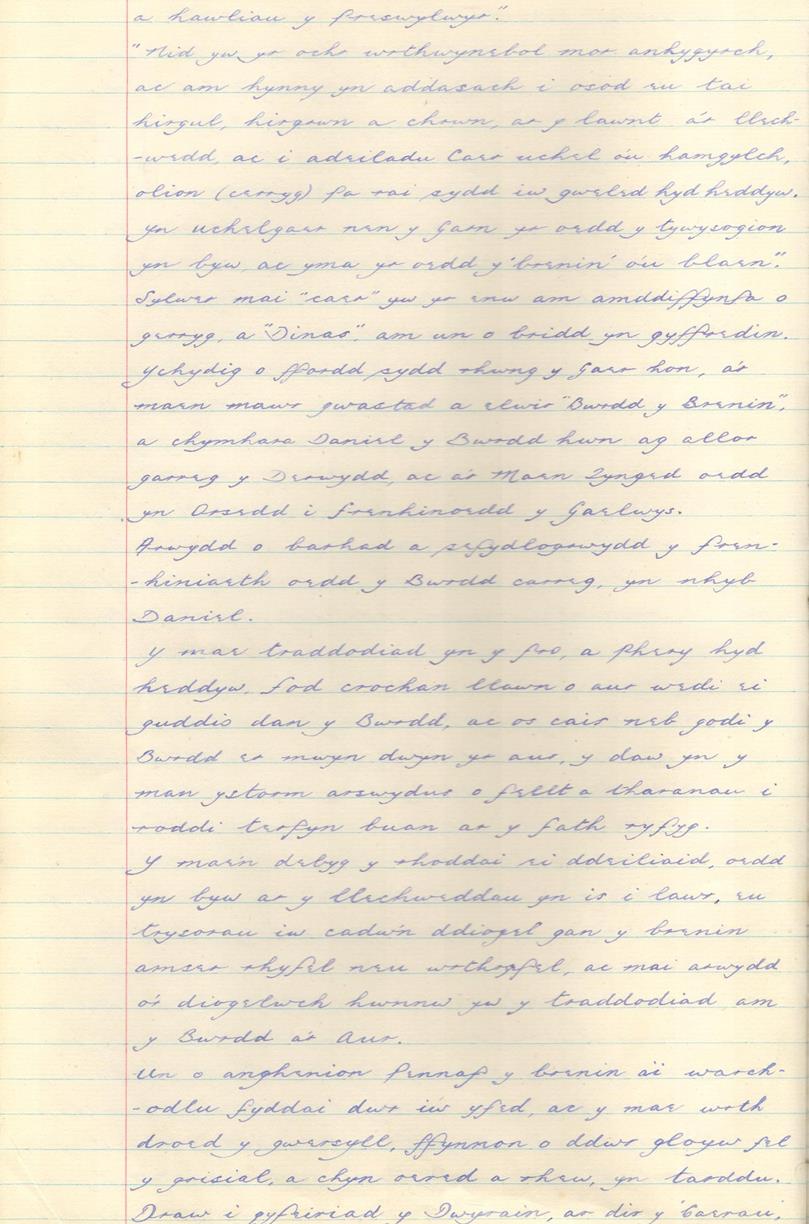 a hawliau y preswylwyr."
"Nid yw yr ochr wrthwynebol mor anhygyrch,
ac am hynny yn addasach i osod eu tai
hirgul, hirgrwn a chrwn, ar y lawnt a'r llech-
-wedd, ac i adeiladu Caer uchel o'u hamgylch,
olion (cerryg) pa rai sydd iw gweled hyd heddyw.
yn uchelgaer nen y Garn yr oedd y tywysogion
yn byw, ac yma yr oedd y 'brenin' o'u blaen".
Sylwer mai "caer" yw yr enw am amddiffynfa o
gerryg, a "Dinas", am un o bridd yn gyffredin.
Ychydig o ffordd sydd rhwng y Gaer hon, a'r
maen mawr gwastad a elwir "Bwrdd y Brenin",
a chymhara Daniel y Bwrdd hwn ag allor
garreg y Derwydd, ac a'r Maen Tynged oedd
yn Orsedd i frenhinoedd y Gaelwys.
Arwydd o barhad a sefydlogrwydd y fren-
-hiniaeth oedd y Bwrdd carreg, yn nhyb
Daniel.
Y mae traddodiad yn y fro, a phery hyd
heddyw, fod crochan llawn o aur wedi ei
guddio dan y Bwrdd, ac os cais neb godi y
Bwrdd er mwyn dwyn yr aur, y daw yn y
man ystorm arswydus o fellt a tharanau i
roddi terfyn buan ar y fath ryfyg.
Y mae'n debyg y rhoddai ei ddeiliaid, oedd
yn byw ar y llechweddau yn is i lawr, eu
trysorau iw cadw'n ddiogel gan y brenin
amser rhyfel neu wrthryfel, ac mai arwydd
o'r diogelwch hwnnw yw y traddodiad am
y Bwrdd a'r Aur.
Un o anghenion pennaf y brenin a'i warch-
-odlu fyddai dwr i'w yfed, ac y mae wrth
droed y gwersyll, ffynnon o ddwr gloyw fel
y grisial, a chyn oered a rhew, yn tarddu.
Draw i gyfeiriad y Dwyrain, ar dir y 'Caerau',